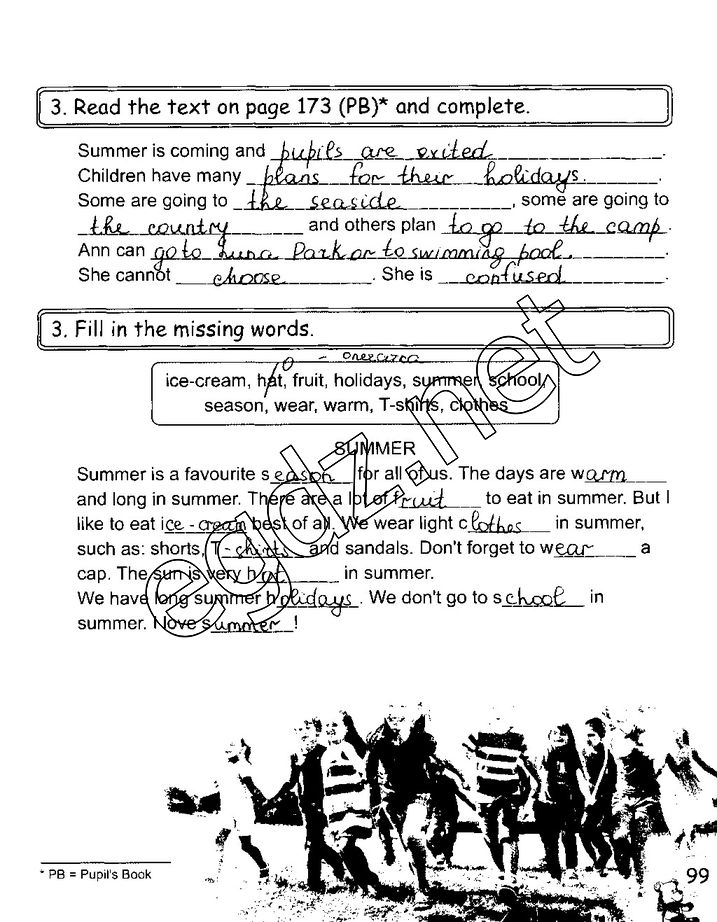 3. Read the text on page 173 (PB)* and complete.
Summer is coming and pupils are exited.
Children have many plans for their holidays.
Some are going to the seaside, some are going to
the country and others plan to go to the camp.
Ann can go to Luna Park or to swimming pool.
She cannot choose. She is confused.
3. Fill in the missing words.
o -
ice-cream, hat, fruit, holidays, summer, school,
season, wear, warm, T-shirts, clothes
SUMMER
Summer is a favourite season for all of us. The days are warm
and long in summer. There are a lot of fruit to eat in summer. But I
like to eat ice-cream best of all. We wear light clothes in summer,
such as: shorts, T-shirts and sandals. Don't forget to wear a
cap. The sun is very hot in summer.
We have long summer holidays. We don't go to school in
summer. I love summer!
egdz.net
* PB = Pupil's Book
99